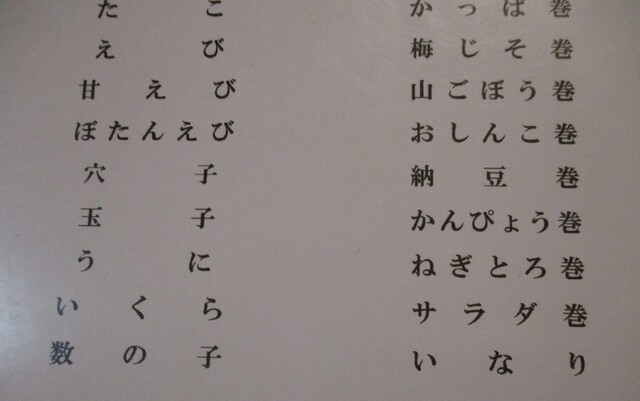 たこ
えび
甘えび
ぼたんえび
穴子
玉子
うに
いくら
数の子
かっぱ巻
梅じそ巻
山ごぼう巻
おしんこ巻
納豆巻
かんぴょう巻
ねぎとろ巻
サラダ巻
いなり